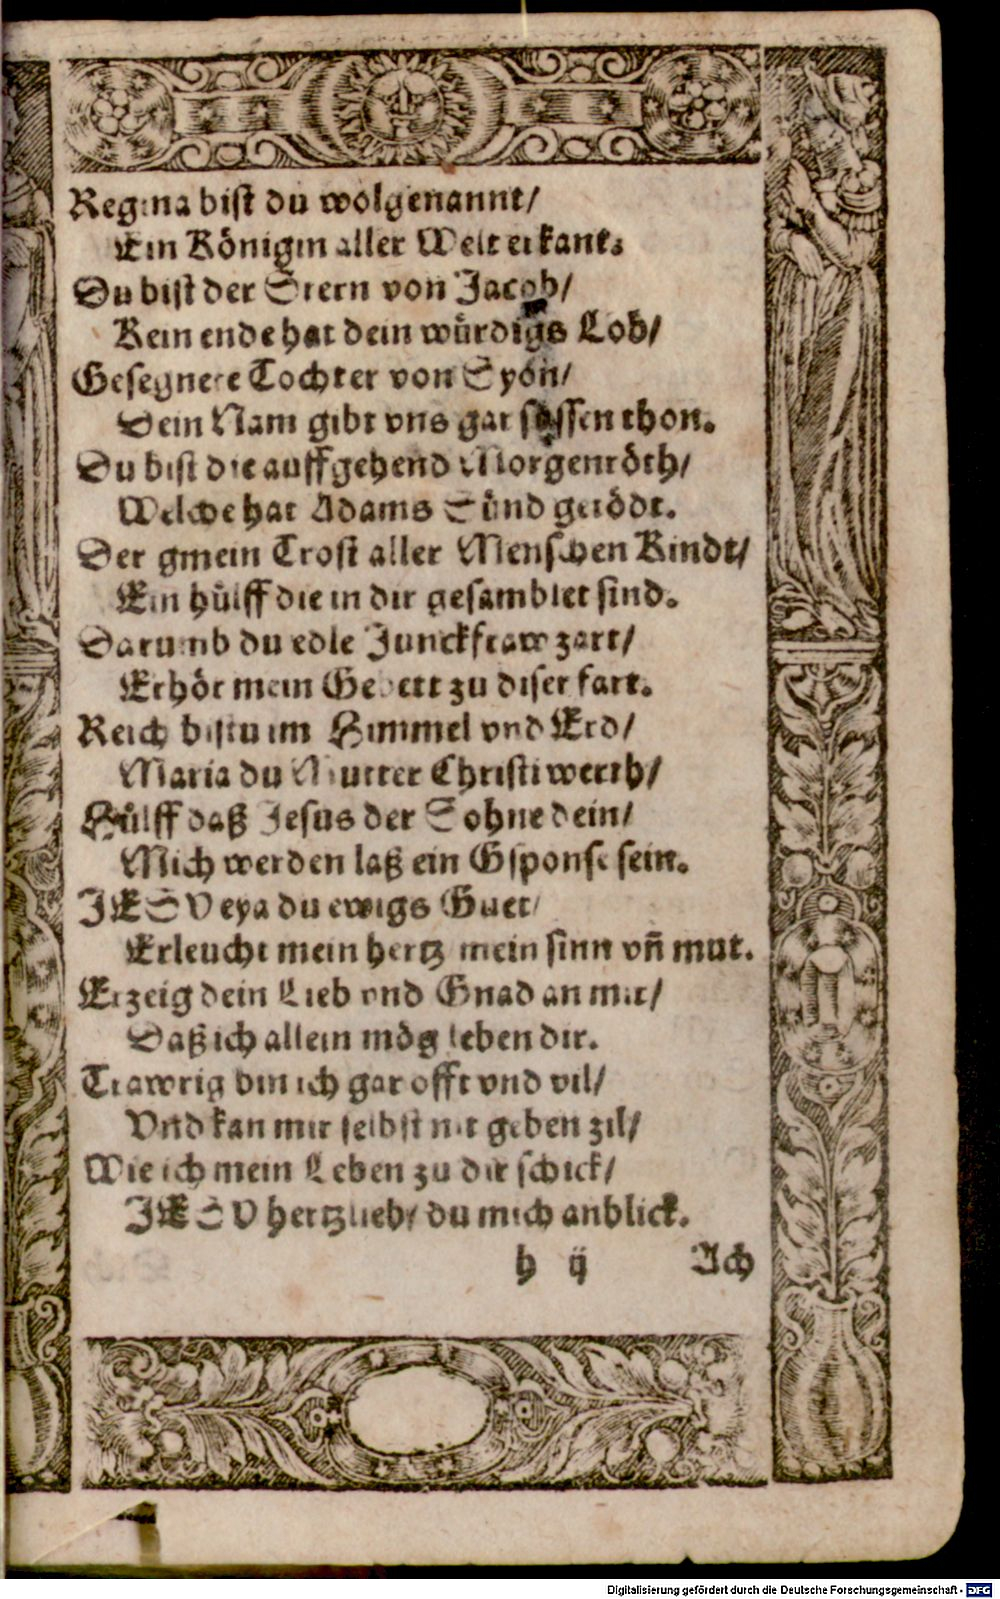 Regina bist du wolgenannt/
Ein Königin aller Welt erkant.
Du bist der Stern von Jacob/
Kein ende hat dein würdigs Lob/
Gesegnete Tochter von Syon/
Dein Nam gibt vns gar süssen thon.
Du bist die auffgehend Morgenröth/
Welche hat Adams Sünd getödt.
Der gmein Trost aller Menschen Kindt/
Ein hülff die in dir gesamblet sind.
Darumb du edle Junckfraw zart/
Erhör mein Gebett zu diser fart.
Reich bistu im Himmel vnd Erd/
Maria du Mutter Christi werth/
Hülff daß Jesus der Sohne dein/
Mich werden laß ein Gsponse sein.
JESV eya du ewigs Guet/
Erleucht mein hertz mein sinn vñ mut.
Erzeig dein Lieb vnd Gnad an mir/
Daß ich allein mög leben dir.
Trawrig bin ich gar offt vnd vil/
Vnd kan mir selbst nit geben zil/
Wie ich mein Leben zu dir schick/
JESV hertzlieb/ du mich anblick.
h ij Ach
Digitalisierung gefördert durch die Deutsche Forschungsgemeinschaft - DFG